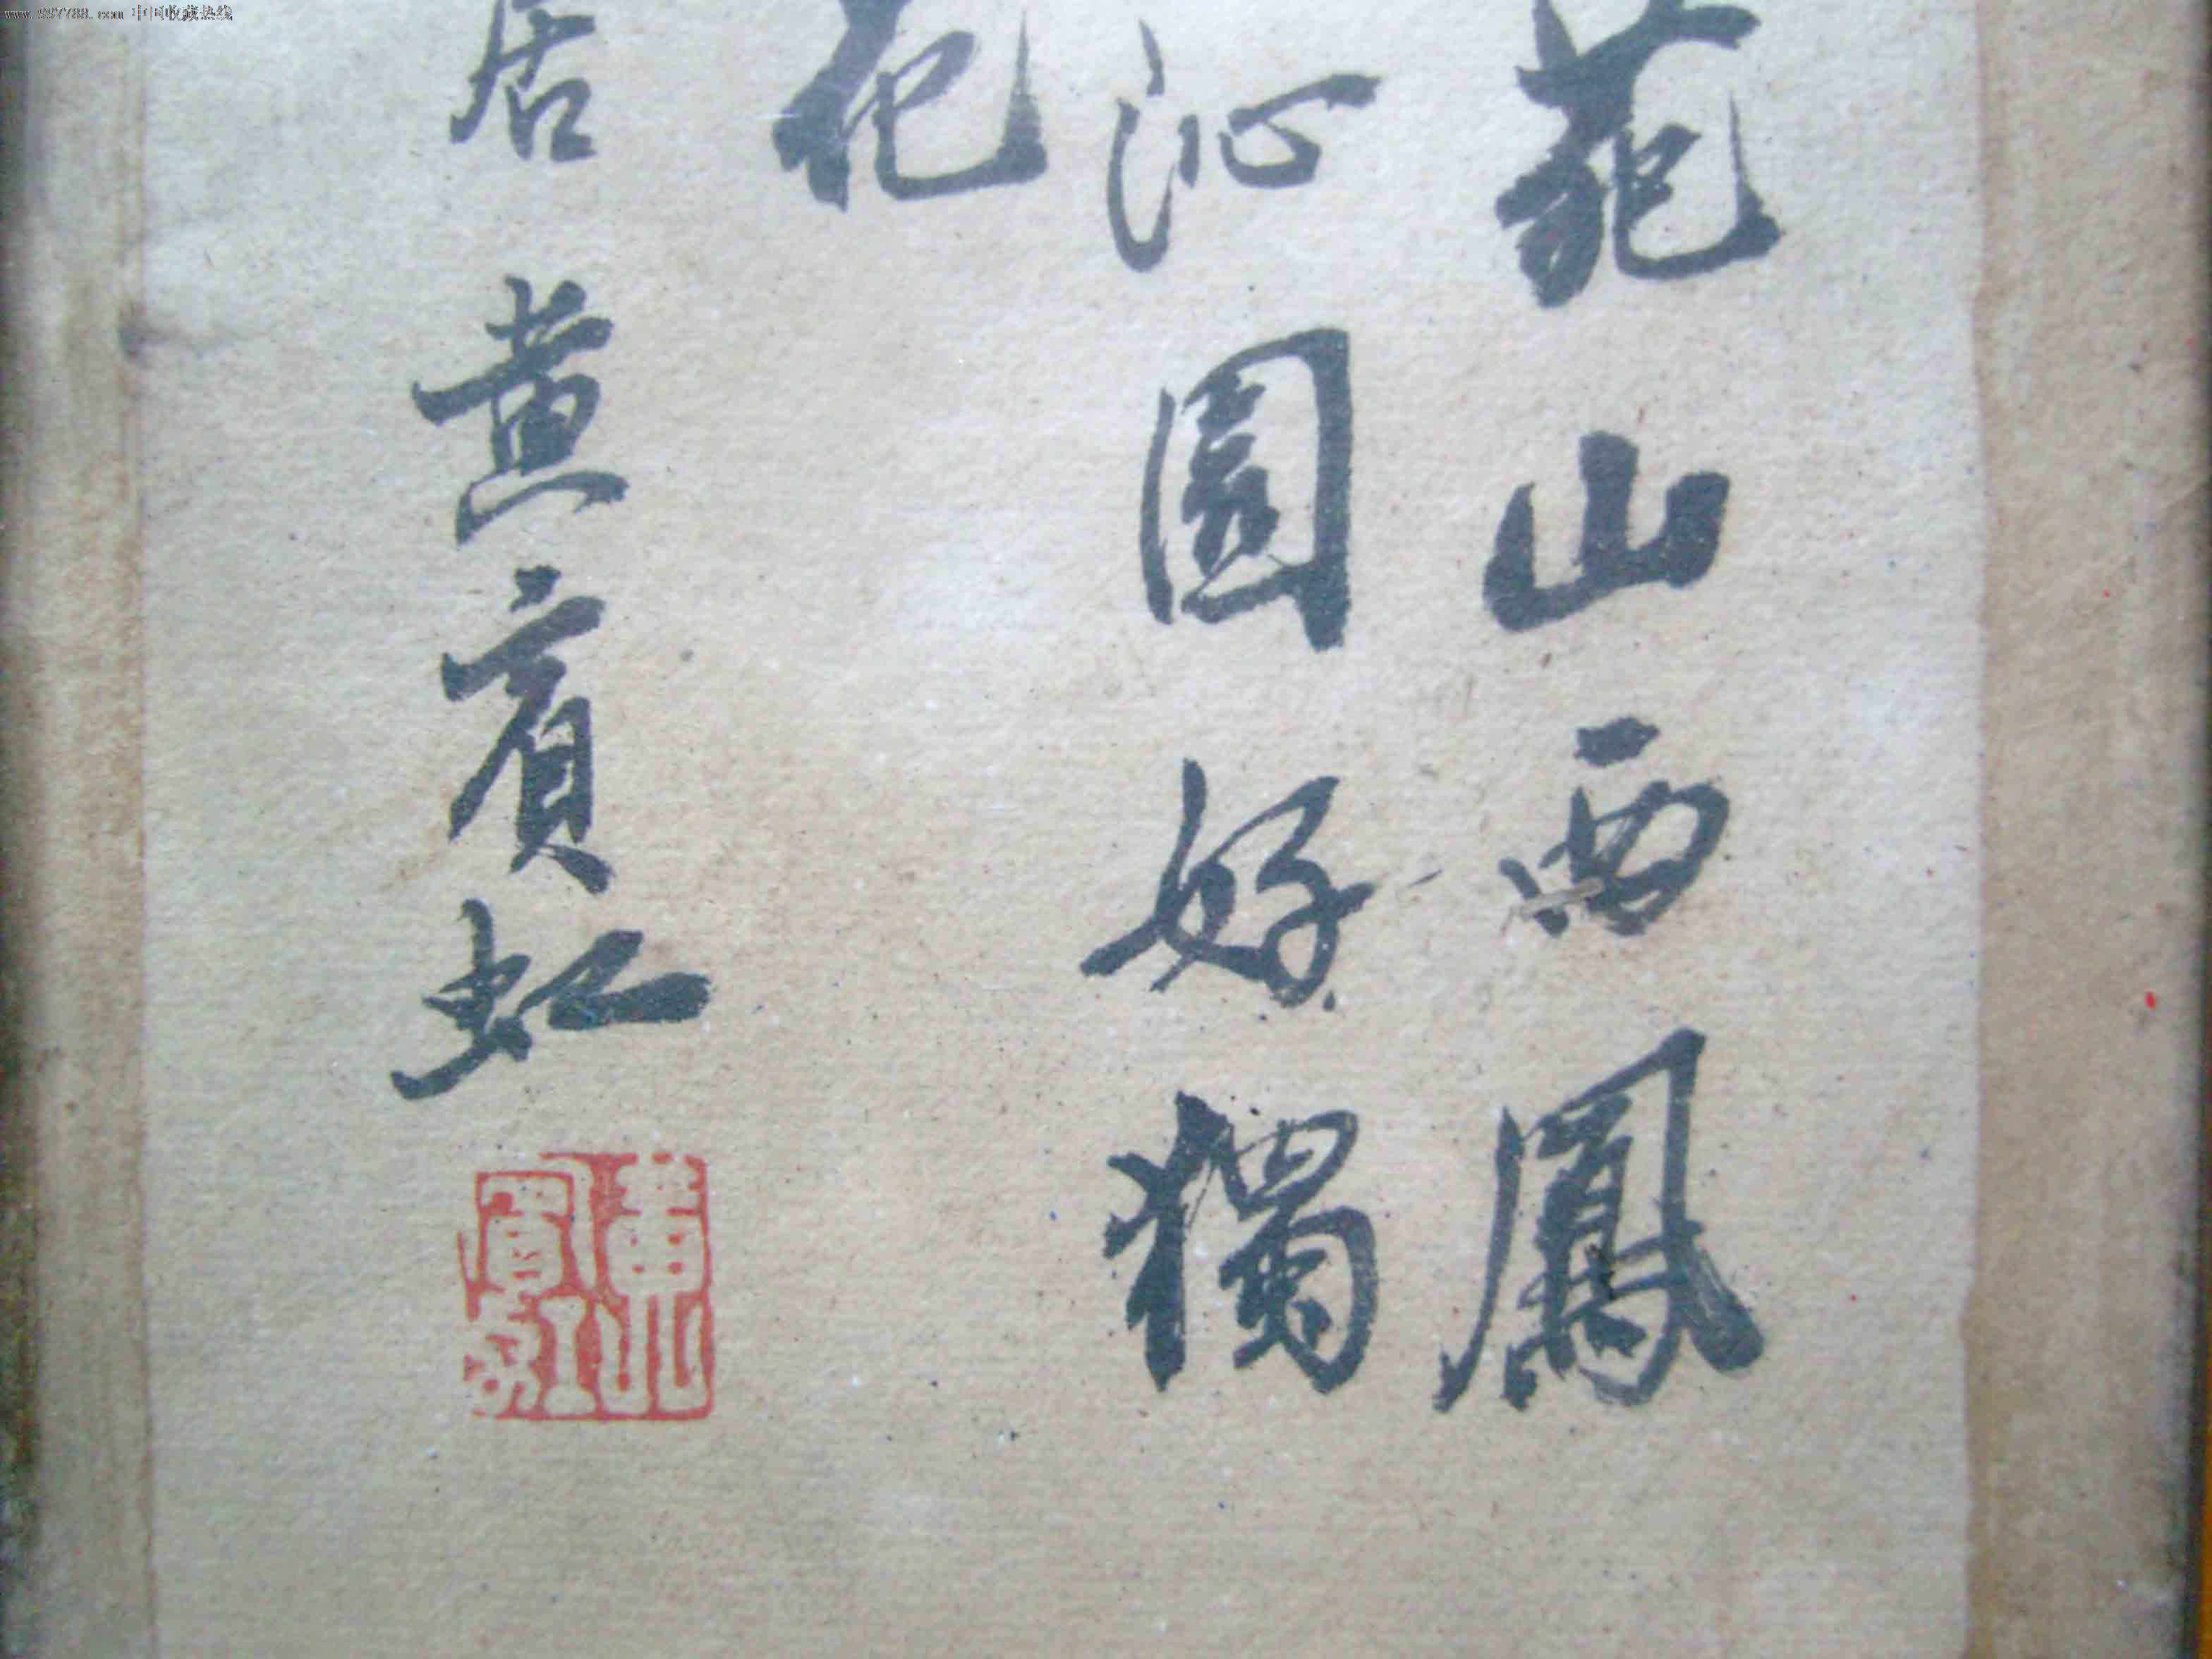 www.997788.com 中国收藏热线
苑山西鳳
沁園好獨
花
居黄賓虹
黄山賓虹